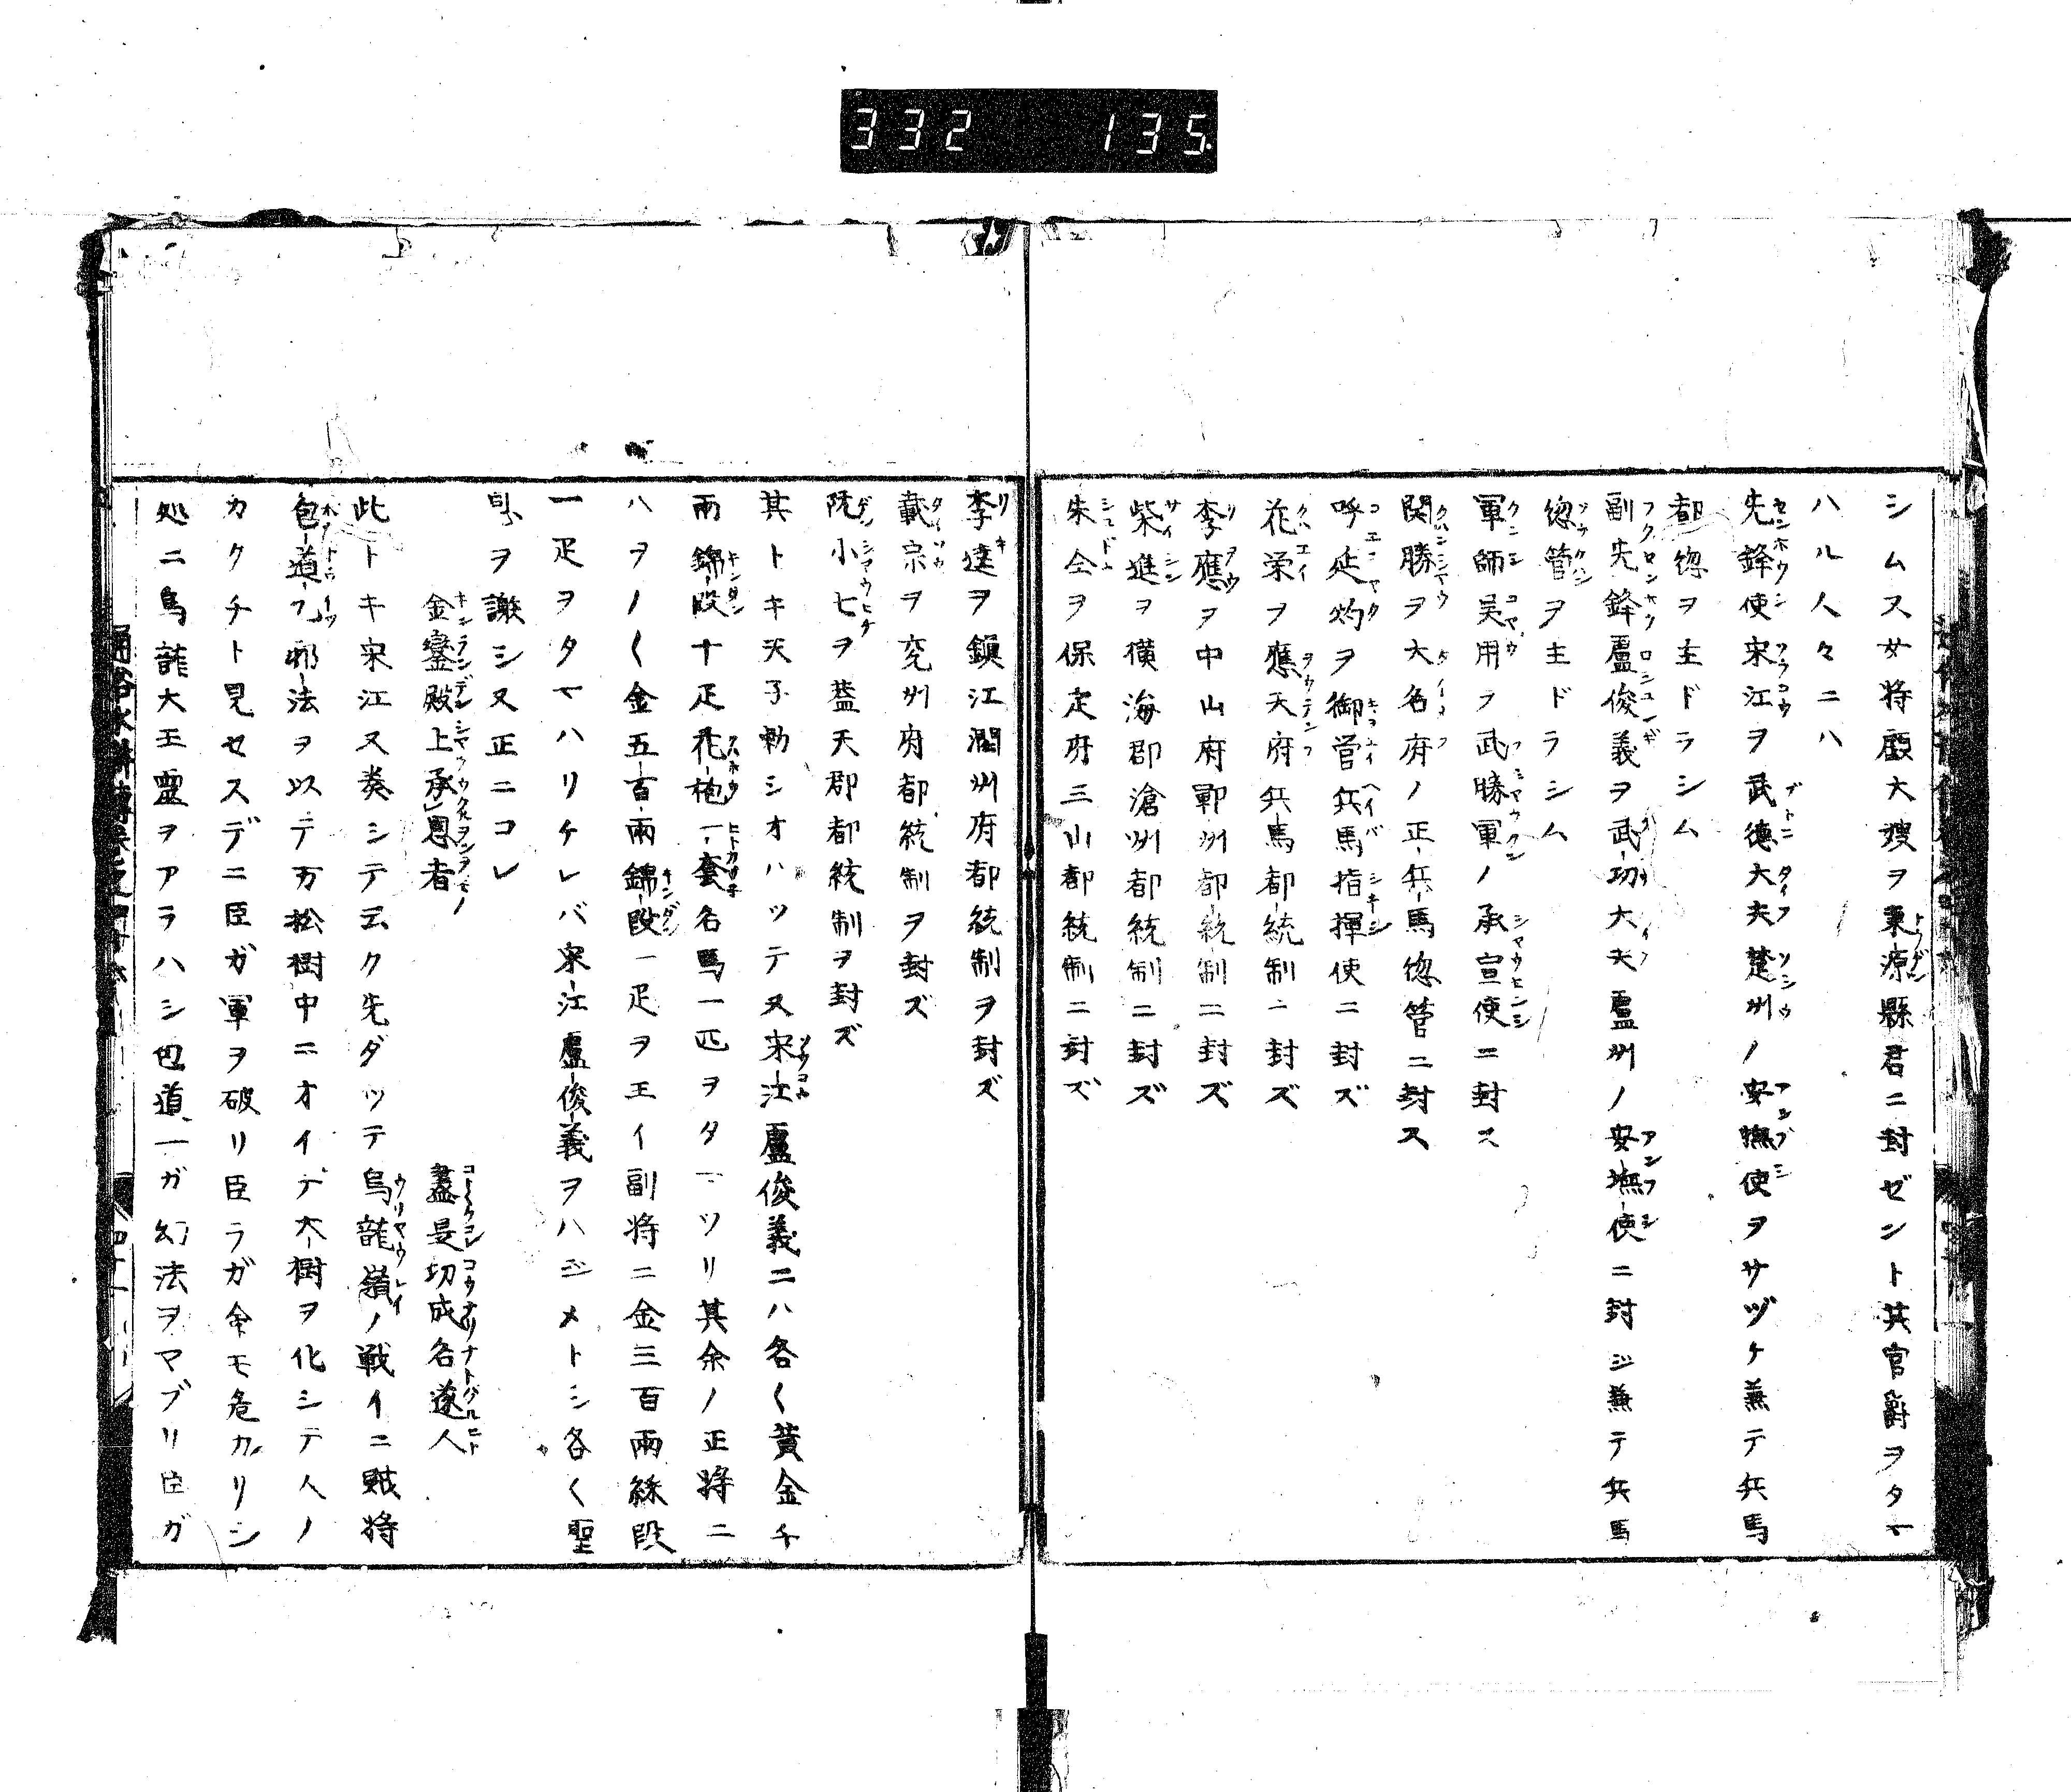 332 135
シムス女将顧大嫂ヲ東源縣君ニ封ゼント其官爵ヲタマ
ハル人々ニハ
先鋒使宋江ヲ武徳大夫楚州ノ安撫使ヲサヅケ兼テ兵馬
都惣ヲ主ドラシム
副先鋒盧俊義ヲ武功大夫盧州ノ安撫使ニ封ジ兼テ兵馬
惣管ヲ主ドラシム
軍師呉用ヲ武勝軍ノ承宣使ニ封ス
関勝ヲ大名府ノ正兵馬惣管ニ封ス
呼延灼ヲ御営兵馬指揮使ニ封ズ
花栄ヲ應天府兵馬都統制ニ封ズ
李應ヲ中山府鄆州都統制ニ封ズ
柴進ヲ横海郡滄州都統制ニ封ズ
朱仝ヲ保定府三山都統制ニ封ズ
李逵ヲ鎭江潤州府都統制ヲ封ズ
戴宗ヲ兗州府都統制ヲ封ズ
阮小七ヲ葢天郡都統制ヲ封ズ
其トキ天子勅シオハツテ又宋江盧俊義ニハ各〱黄金千
兩錦段十疋花袍一套名馬一匹ヲタマツリ其余ノ正将ニ
ハヲノ〱金五百兩錦段一疋ヲ玉イ副将ニ金三百兩綵段
一疋ヲタマハリケレバ宋江盧俊義ヲハジメトシ各〱聖
恩ヲ謝シ又正ニコレ
金鑾殿上承恩者 盡是功成名遂人
此トキ宋江又奏シテ云ク先ダツテ烏龍嶺ノ戦イニ賊将
包道乙邪法ヲ以テ万松樹中ニオイテ大樹ヲ化シテ人ノ
カタチト見セスデニ臣ガ軍ヲ破リ臣ラガ命モ危カリシ
処ニ烏龍大王靈ヲアラハシ包道一ガ幻法ヲマブリ臣ガ
通俗水滸傳巻之四十六